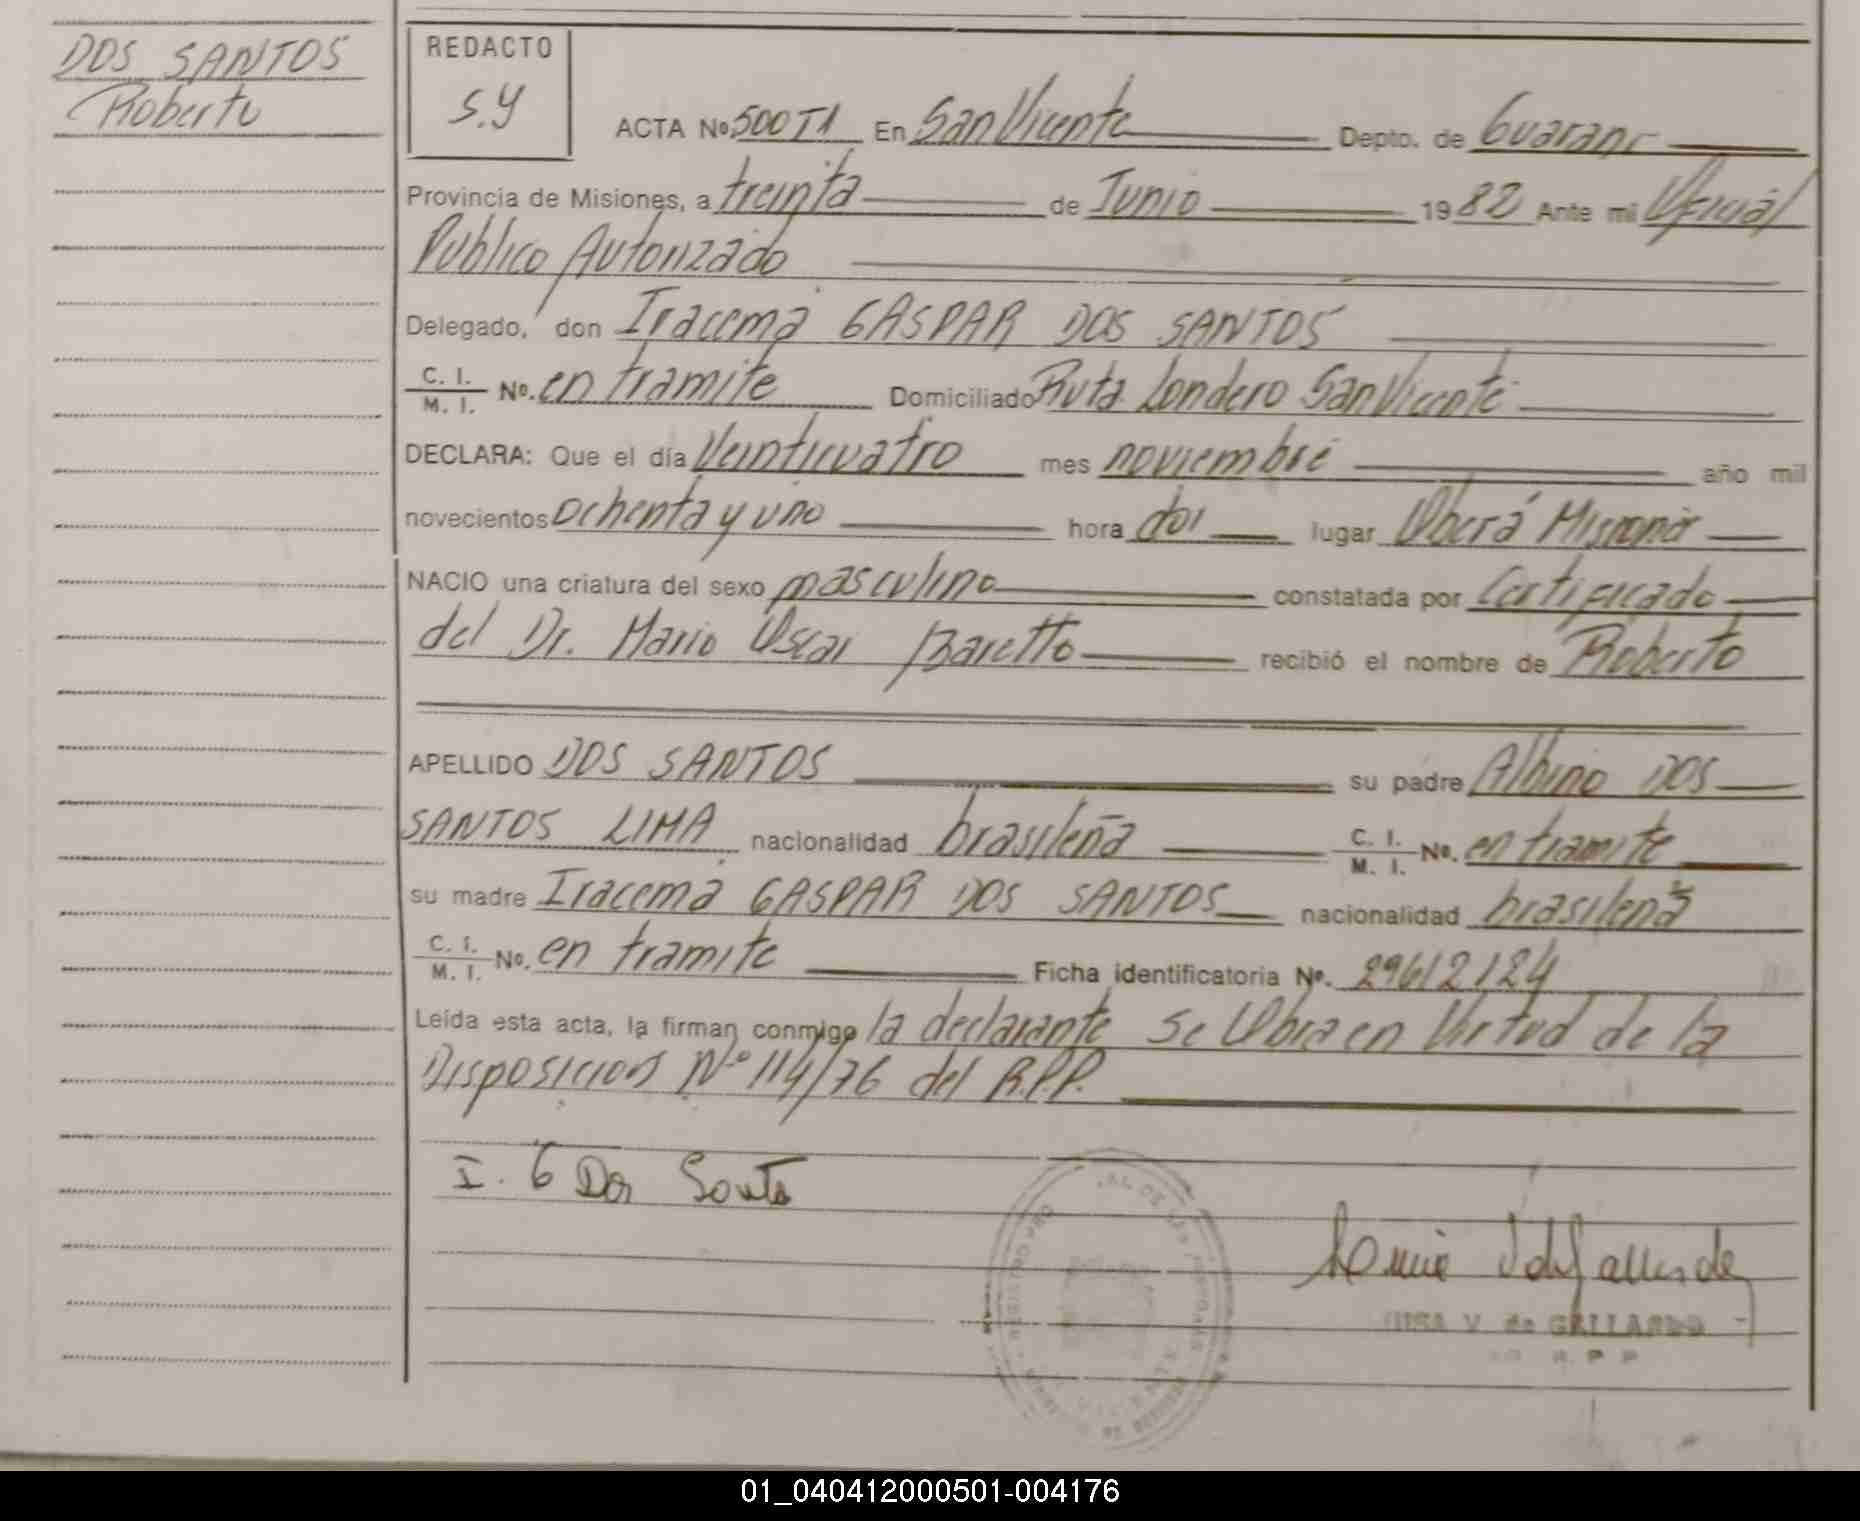 DOS SANTOS
Roberto
REDACTO
S.Y
ACTA No 500 T1 En San Vicente Depto. de Guarani
Provincia de Misiones, a treinta de Junio 1982 Ante mi Oficial
Publico Autorizado
Delegado, don Iracema GASPAR DOS SANTOS
C. I. / M. I. No. en tramite Domiciliado Ruta Londero San Vicente
DECLARA: Que el día Veinticuatro mes noviembre año mil
novecientos ochenta y uno hora dos lugar Oberá Misiones
NACIO una criatura del sexo masculino constatada por Certificado
del Dr. Mario Oscar Baretto recibió el nombre de Roberto
APELLIDO DOS SANTOS su padre Albino DOS
SANTOS LIMA nacionalidad brasileña C. I. / M. I. No. en tramite
su madre Iracema GASPAR DOS SANTOS nacionalidad brasileña
C. I. / M. I. No. en tramite Ficha identificatoria No. 29612124
Leída esta acta, la firman conmigo la declarante Se Obra en Virtud de la
Disposicion Nº 114/76 del R.P.P.
I. G Dos Santos
V. de GALLARDO
R. P. P.
01_040412000501-004176